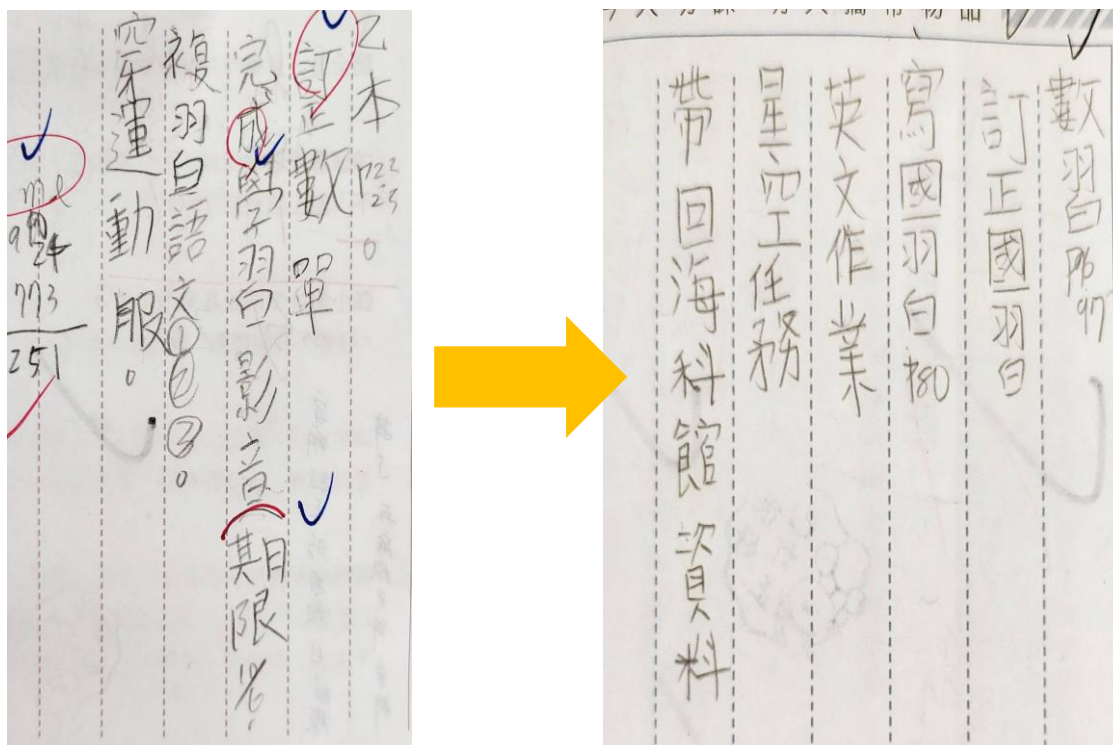 乙本P22-23。
訂正數單
完成學習影音(期限
複習語文①②③。
穿運動服。
ml
773
251
數習P96 97
訂正國習
寫國習P80
英文作業
星空任務
帶回海科館資料